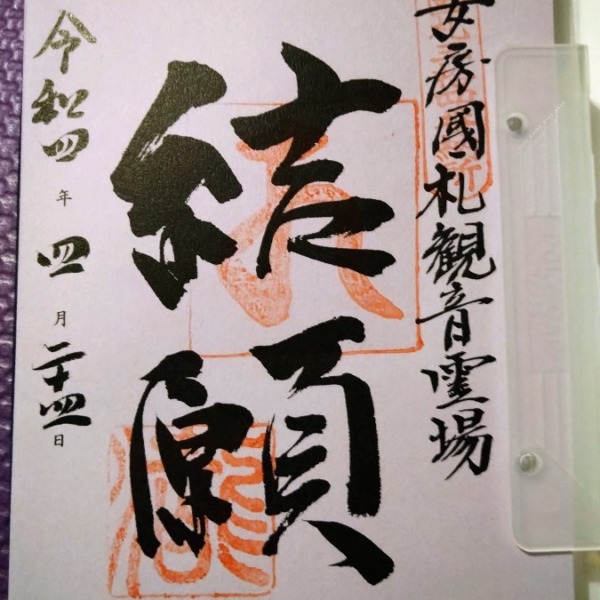 安房國札観音霊場
結願
令和四年四月二十四日